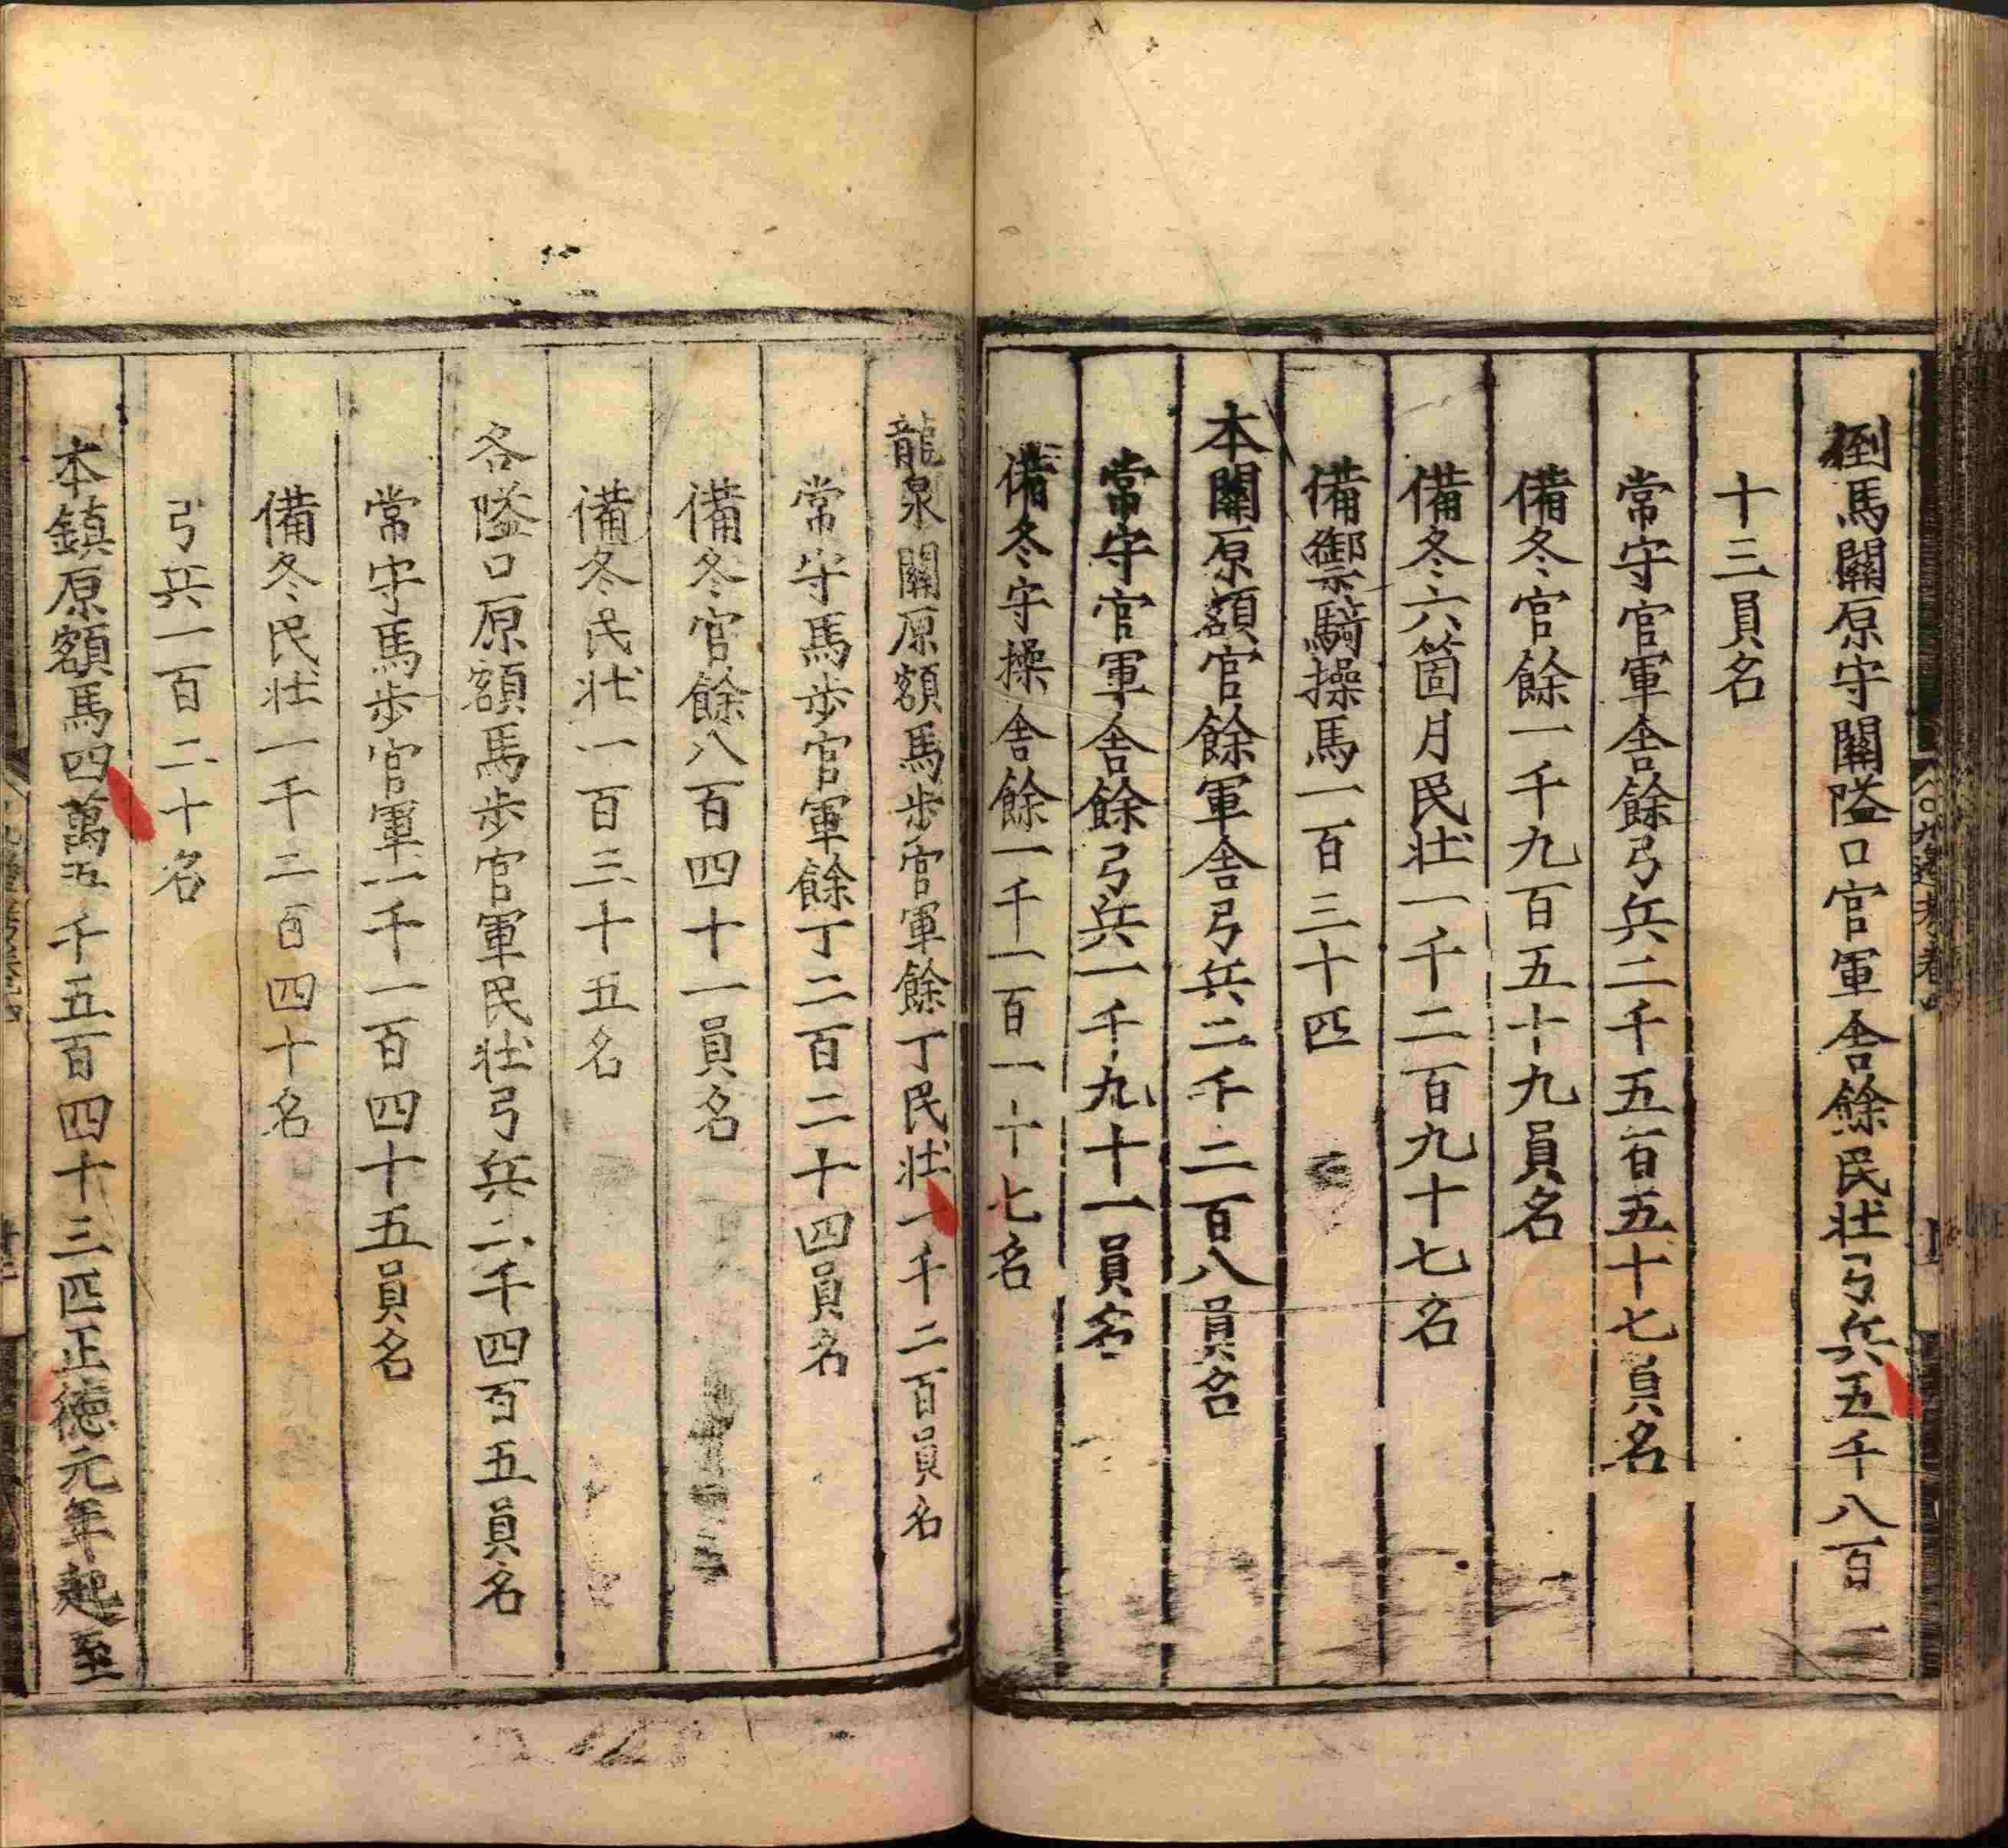 倒馬關原守關隘口官軍舍餘民壯弓兵五千八百一
十三員名
常守官軍舍餘弓兵二千五百五十七員名
備冬官餘一千九百五十九員名
備冬六箇月民壯一千二百九十七名
備禦騎操馬一百三十匹
本關原額官餘軍舍弓兵二千二百八員名
常守官軍舍餘弓兵一千九十一員名
備冬守操舍餘一千一百一十七名
龍泉關原額馬步官軍餘丁民壯一千二百員名
常守馬步官軍餘丁二百二十四員名
備冬官餘八百四十一員名
備冬民壯一百三十五名
各隘口原額馬步官軍民壯弓兵二千四百五員名
常守馬步官軍一千一百四十五員名
備冬民壯一千二百四十名
弓兵一百二十名
本鎮原額馬四萬五千五百四十三匹正德元年起至